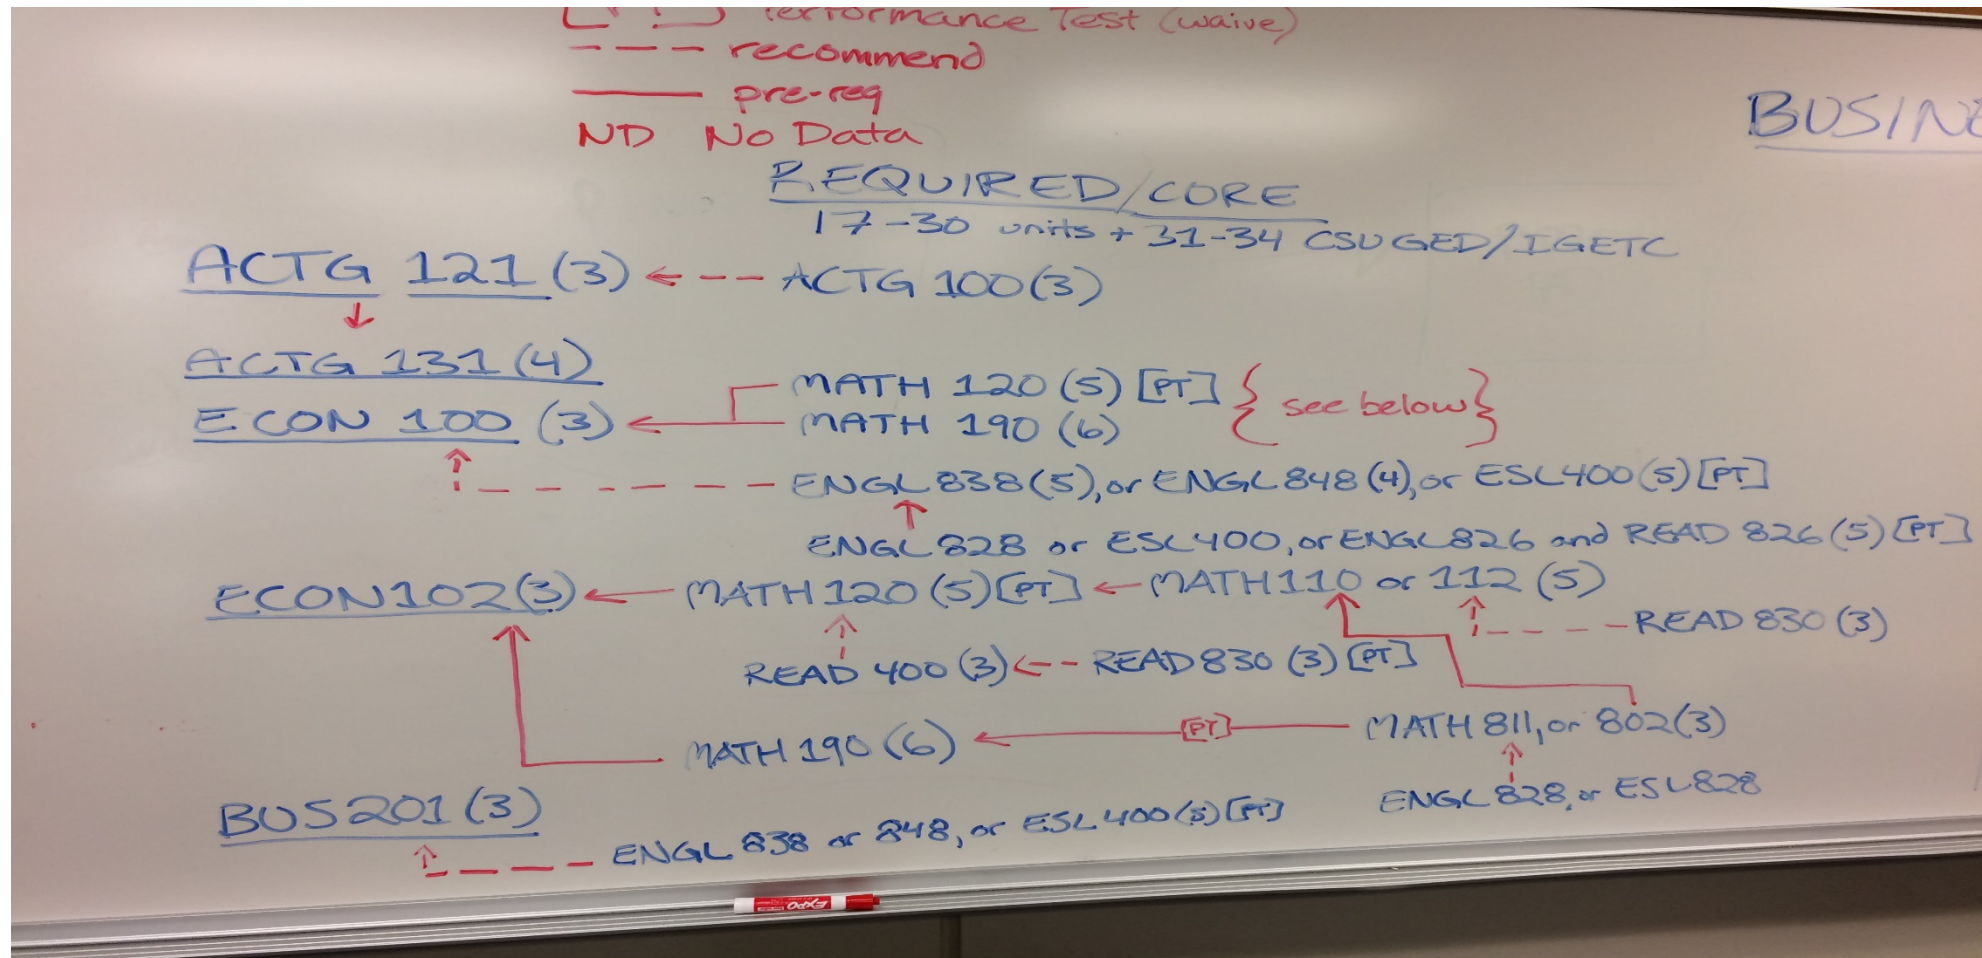 [PT] Performance Test (waive)
--- recommend
— pre-req
ND No Data
BUSINE
REQUIRED/CORE
17-30 units + 31-34 CSUGED/IGETC
ACTG 121 (3) ←--- ACTG 100 (3)
↓
ACTG 131 (4)
MATH 120 (5) [PT] { see below }
ECON 100 (3) ← MATH 190 (6)
ENGL 838 (5), or ENGL 848 (4), or ESL 400 (5) [PT]
ENGL 828 or ESL 400, or ENGL 826 and READ 826 (5) [PT]
ECON 102 (3) ← MATH 120 (5) [PT] ← MATH 110 or 112 (5)
READ 830 (3)
READ 400 (3) ←-- READ 830 (3) [PT]
MATH 190 (6) ← [PT] — MATH 811, or 802 (3)
ENGL 828, or ESL 828
BUS 201 (3)
ENGL 838 or 848, or ESL 400 (5) [PT]
EXPO